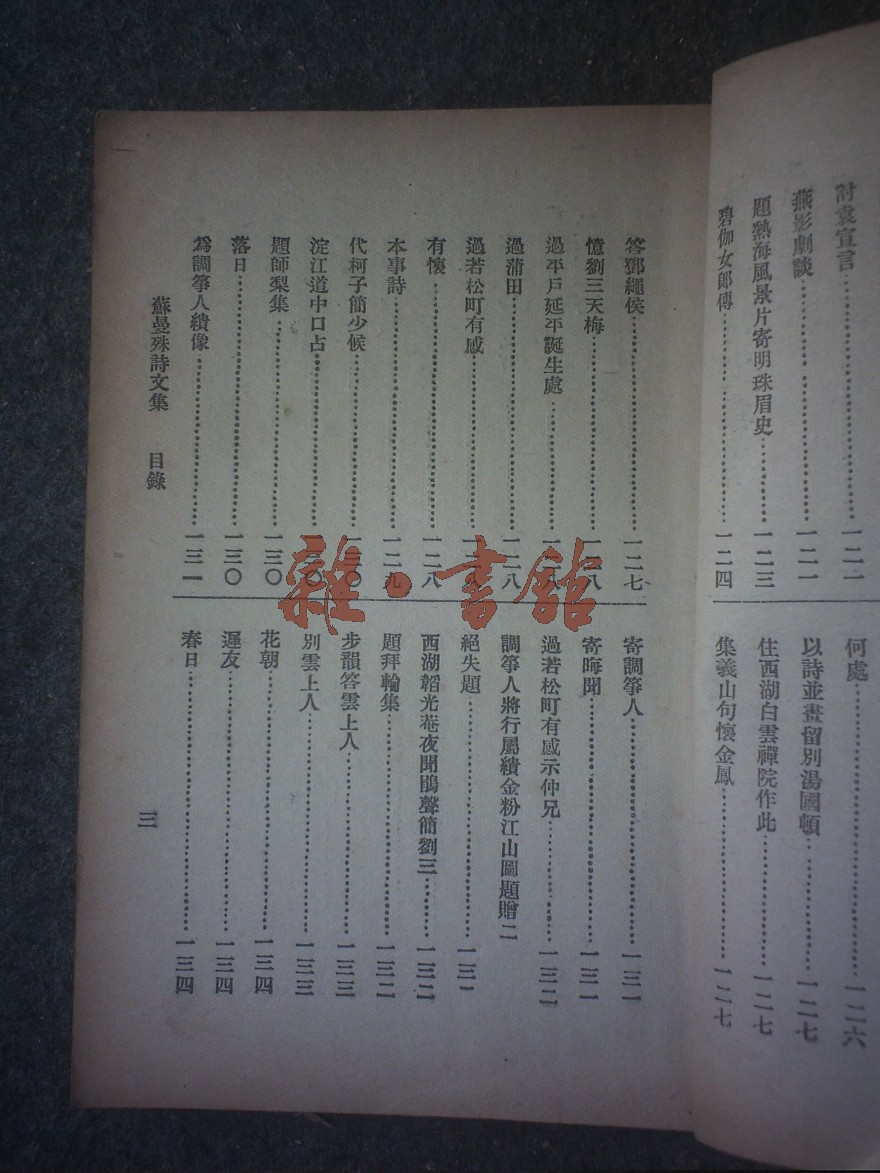 討袁宣言⋯⋯一二一
燕影劇談⋯⋯一二一
題熱海風景片寄明珠眉史⋯⋯一二三
碧伽女郎傳⋯⋯一二四
何處⋯⋯一二六
以詩並畫留別湯國頓⋯⋯一二七
住西湖白雲禪院作此⋯⋯一二七
集義山句懷金鳳⋯⋯一二七
答鄧繩侯⋯⋯一二七
憶劉三天梅⋯⋯一二八
過平戶延平誕生處⋯⋯一二八
過蒲田⋯⋯一二八
過若松町有感⋯⋯一二八
有懷⋯⋯一二八
本事詩⋯⋯一二九
代柯子簡少候⋯⋯一三〇
淀江道中口占⋯⋯一三〇
題師梨集⋯⋯一三〇
落日⋯⋯一三〇
為調箏人繢像⋯⋯一三一
寄調箏人⋯⋯一三一
寄晦聞⋯⋯一三一
過若松町有感示仲兄⋯⋯一三二
調箏人將行屬繢金粉江山圖題贈二
絕失題⋯⋯一三一
西湖韜光菴夜聞鵑聲簡劉三⋯⋯一三二
題拜輪集⋯⋯一三二
步韻答雲上人⋯⋯一三三
別雲上人⋯⋯一三三
花朝⋯⋯一三四
遲友⋯⋯一三四
春日⋯⋯一三四
蘇曼殊詩文集 目錄
三
雜·書館